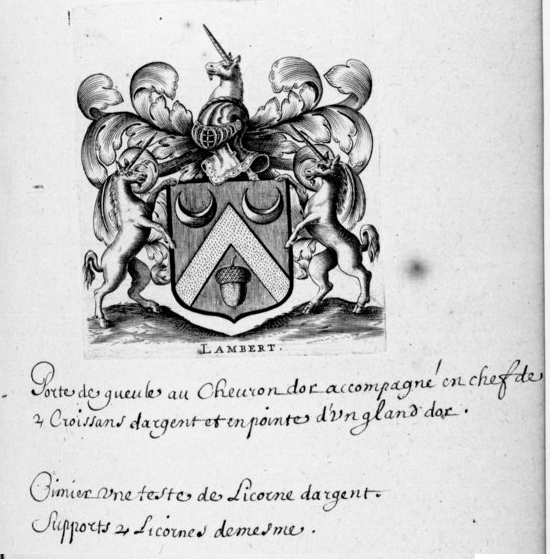 LAMBERT.
Porte de gueule au Cheuron dor accompagné en chef de
2 Croissans dargent et en pointe d'vn gland dor.
Cimier vne teste de Licorne dargent.
Supports 2 Licornes demesme.